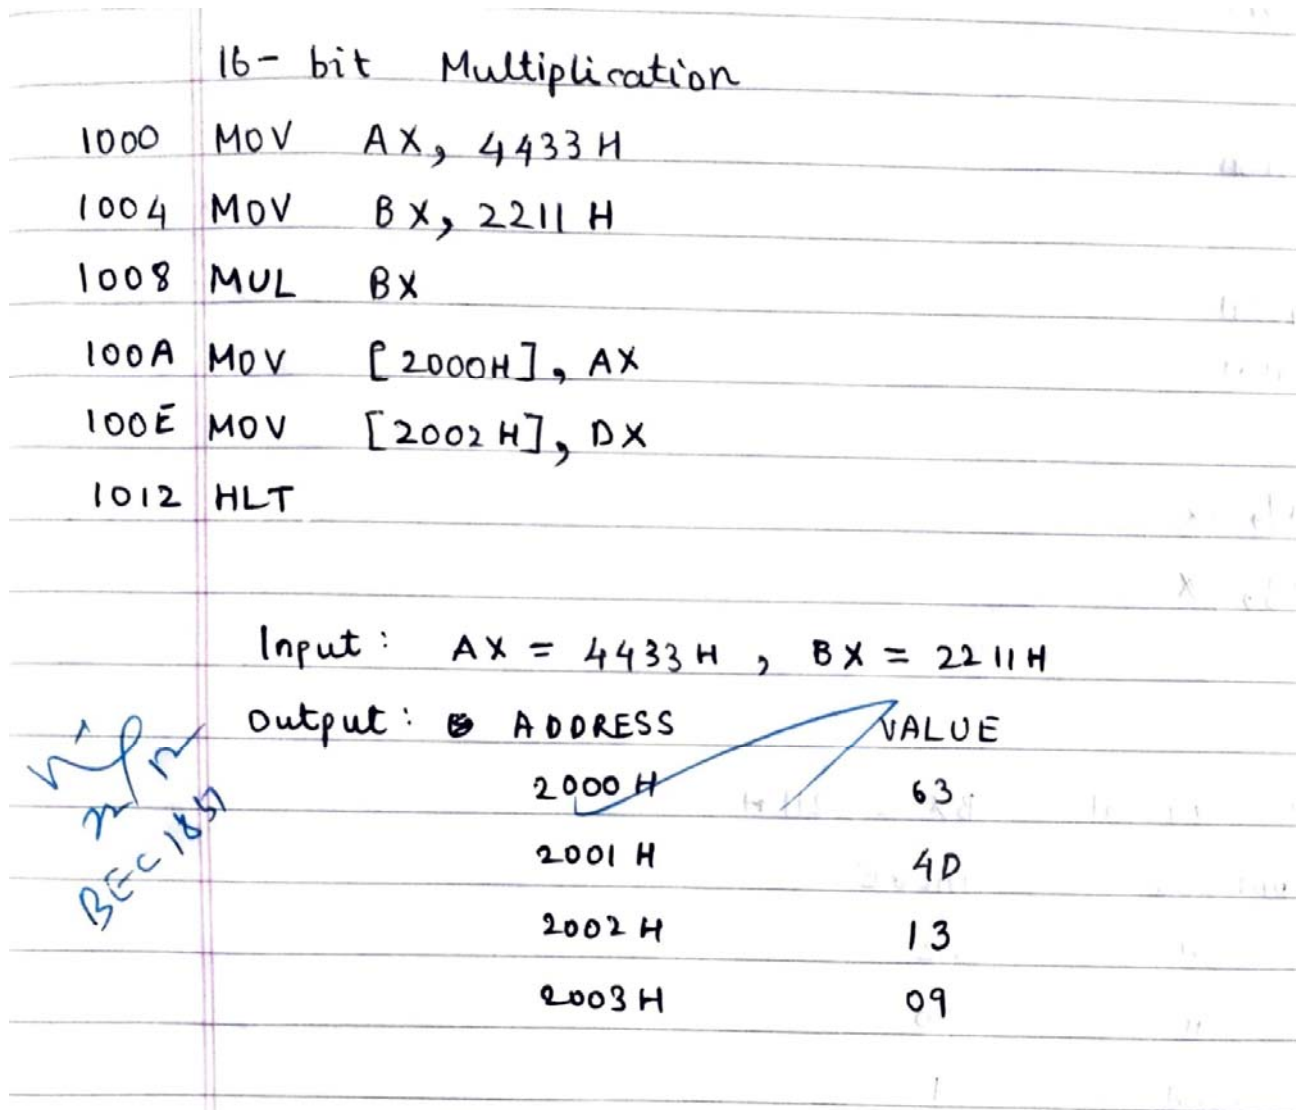 16- bit Multiplication
1000 MOV AX, 4433 H
1004 MOV BX, 2211 H
1008 MUL BX
100A MOV [2000H], AX
100E MOV [2002 H], DX
1012 HLT
Input: AX = 4433 H, BX = 2211 H
Output: ADDRESS VALUE
2000 H 63
2001 H 4D
2002 H 13
2003 H 09